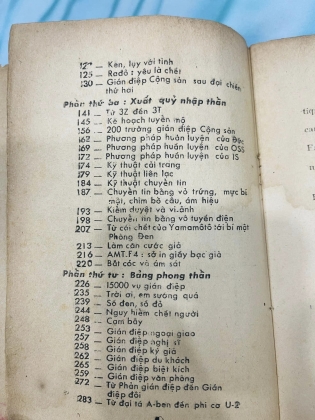 121 — Kén, lụy với tình
125 — Rađô : yêu là chết
130 — Gián điệp Cộng sản sau đại chiến
thứ hai
Phần thứ ba : Xuất quỷ nhập thần
141 — Từ 3Z đến 3T
145 — Kế hoạch tuyển mộ
156 — 200 trường gián điệp Cộng sản
162 — Phương pháp huấn luyện của Đức
169 — Phương pháp huấn luyện của OSS
172 — Phương pháp huấn luyện của IS
174 — Kỹ thuật cải trang
179 — Kỹ thuật liên lạc
184 — Kỹ thuật chuyển tin
187 — Chuyển tin bằng vô trứng, mực bí
mật, chim bồ câu, ám hiệu
193 — Kiểm duyệt và vi-ảnh
198 — Chuyển tin bằng vô tuyến điện
207 — Từ cái chết của Yamamôtô tới bí mật
Phòng Đen
213 — Làm căn cước giả
216 — AMT.F4 : sở in giấy bạc giả
220 — Bắt cóc và ám sát
Phần thứ tư : Bảng phong thần
226 — 15000 vụ gián điệp
235 — Trời ơi, em sướng quá
239 — Sổ đen, sổ đỏ
244 — Nguy hiểm chết người
248 — Cạm bẫy
253 — Gián điệp ngoại giao
257 — Gián điệp nghị sĩ
258 — Gián điệp ký giả
262 — Gián điệp du khách
265 — Gián điệp biệt kích
259 — Gián điệp văn phòng
272 — Từ Phản gián điệp đến Gián
điệp đôi
283 — Từ đại tá A-ben đến phi cơ U-2